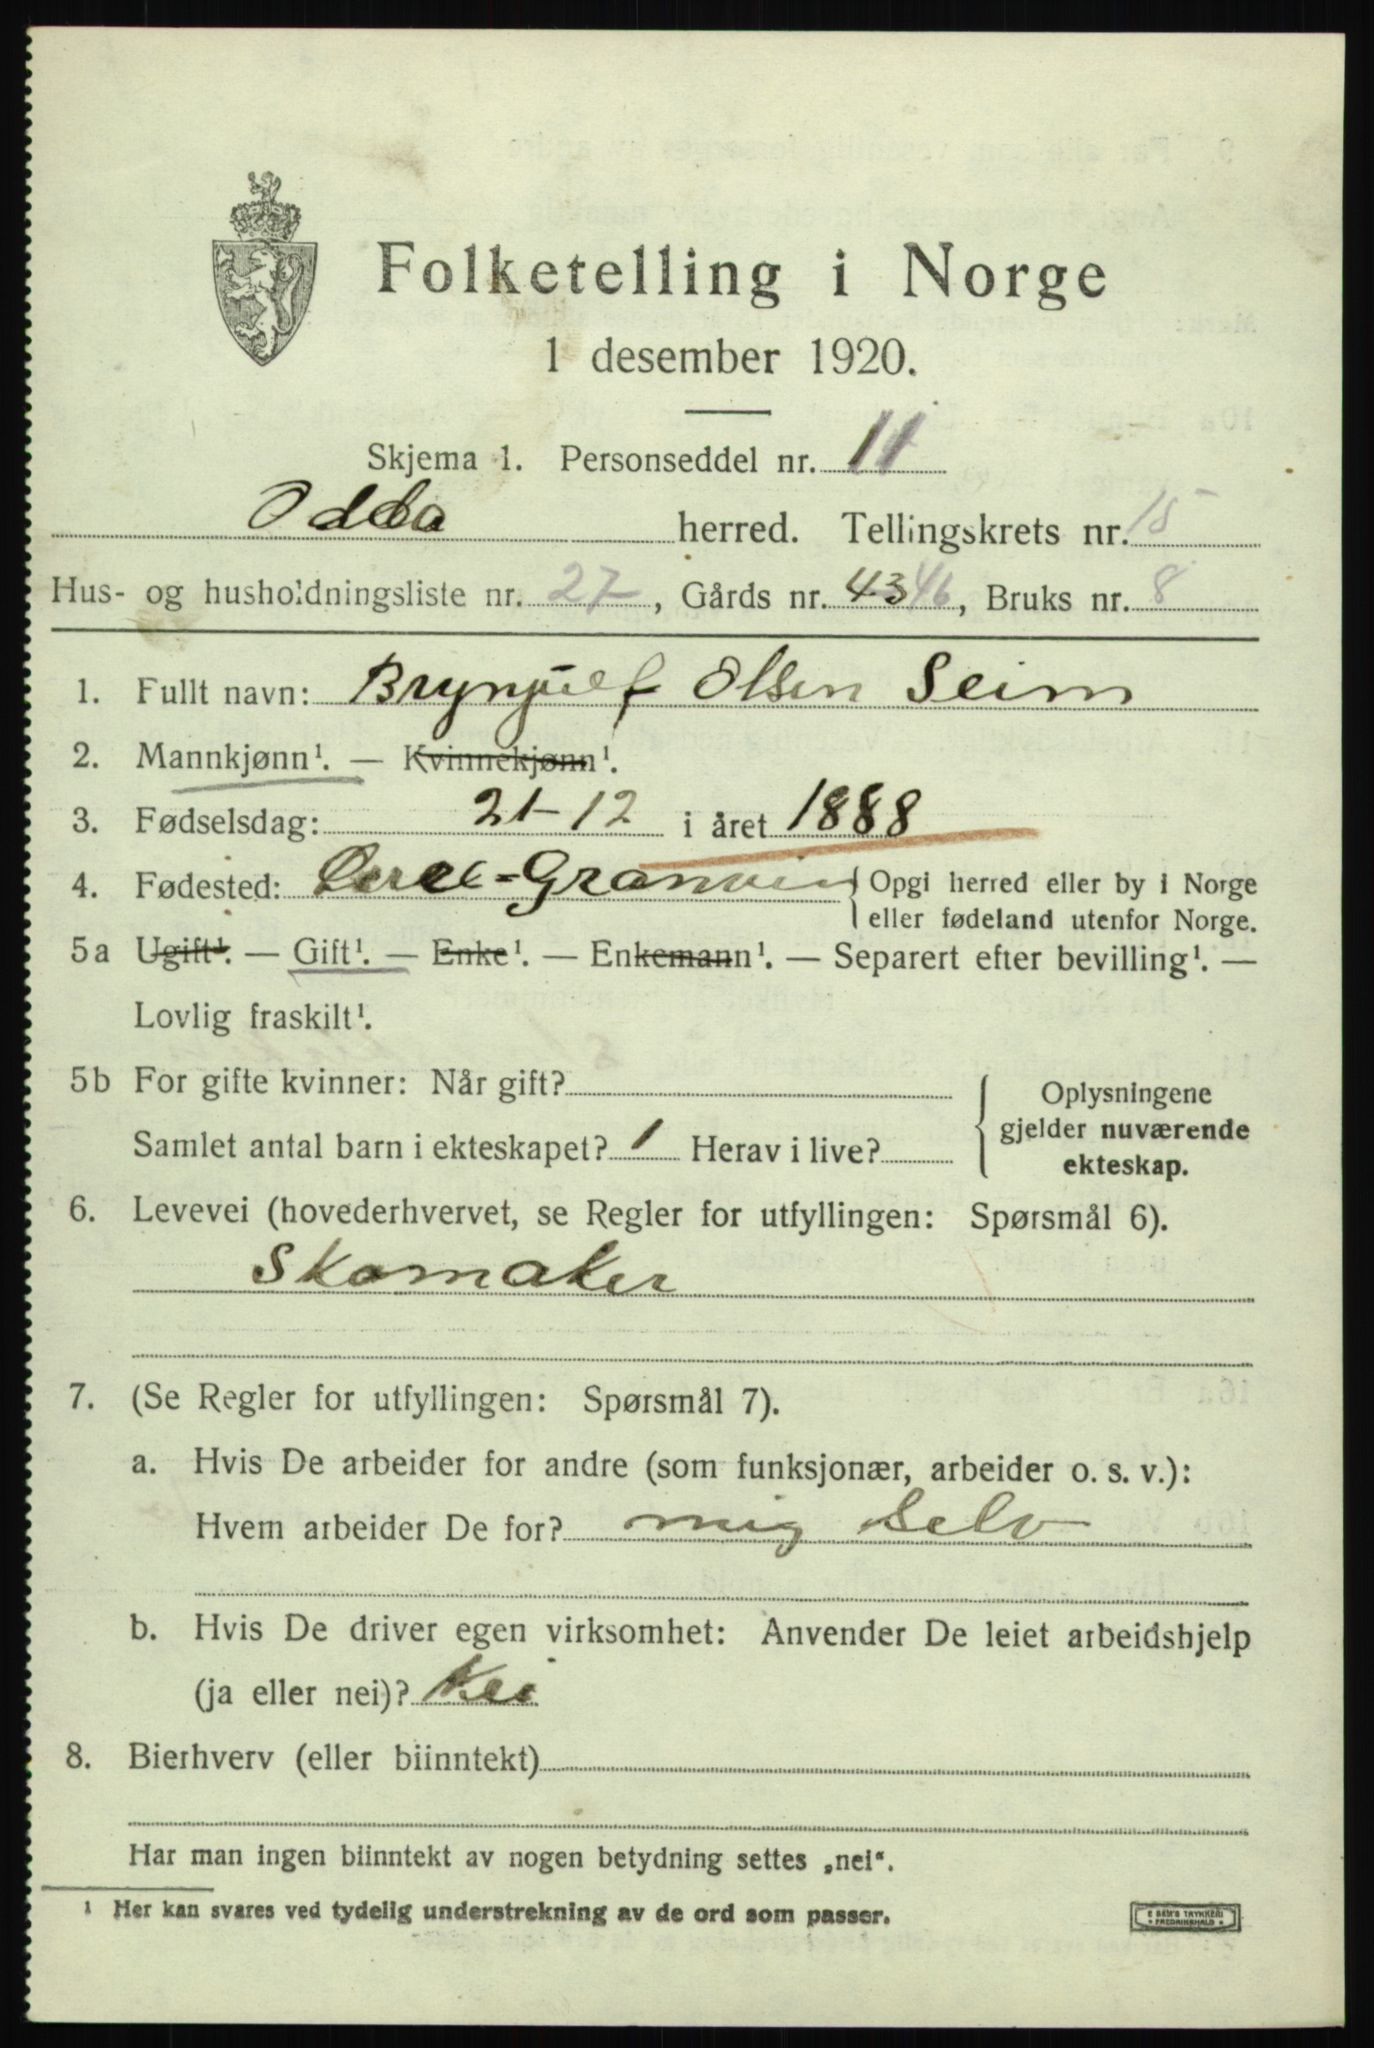 Folketelling i Norge
1 desember 1920.
Skjema 1. Personseddel nr. 11
Odda herred. Tellingskrets nr. 15
Hus- og husholdningsliste nr. 27, Gårds nr. 43 46, Bruks nr. 8
1. Fullt navn: Brynjulf Olsen Seim
2. Mannkjønn¹. — Kvinnekjønn¹.
3. Fødselsdag: 21-12 i året 1888
4. Fødested: Granvin { Opgi herred eller by i Norge
eller fødeland utenfor Norge.
5a Ugift¹. — Gift¹. — Enke¹. — Enkemann¹. — Separert efter bevilling¹. —
Lovlig fraskilt¹.
5b For gifte kvinner: Når gift?
Samlet antal barn i ekteskapet? 1 Herav i live?
{ Oplysningene
gjelder nuværende
ekteskap.
6. Levevei (hovederhvervet, se Regler for utfyllingen: Spørsmål 6).
Skomaker
7. (Se Regler for utfyllingen: Spørsmål 7).
a. Hvis De arbeider for andre (som funksjonær, arbeider o. s. v.):
Hvem arbeider De for? mig selv
b. Hvis De driver egen virksomhet: Anvender De leiet arbeidshjelp
(ja eller nei)? Nei
8. Bierhverv (eller biinntekt)
Har man ingen biinntekt av nogen betydning settes „nei“.
¹ Her kan svares ved tydelig understrekning av de ord som passer.
E SEM'S TRYKKERI
• FREDRIKSHALD •